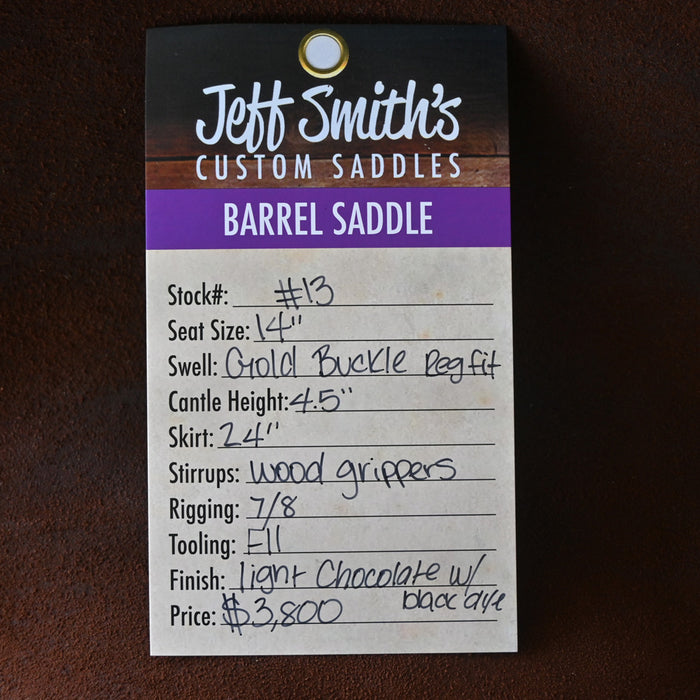 Jeff Smith's
CUSTOM SADDLES
BARREL SADDLE
Stock#: #13
Seat Size: 14"
Swell: Gold Buckle Reg fit
Cantle Height: 4.5"
Skirt: 24"
Stirrups: wood grippers
Rigging: 7/8
Tooling: F11
Finish: light Chocolate w/
black dye
Price: $3,800